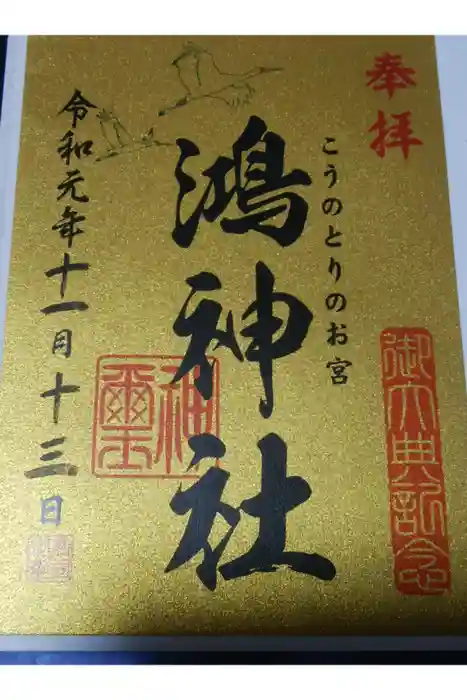 奉拝
こうのとりのお宮
鴻神社
令和元年十一月十三日
御大典記念
神璽